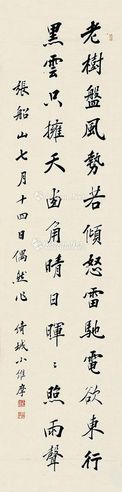 老樹盤風勢若傾怒雷馳電欲東行
黑雲只擁天西角晴日暉〻照雨聲
張船山七月十四日偶然作 倚城小維摩